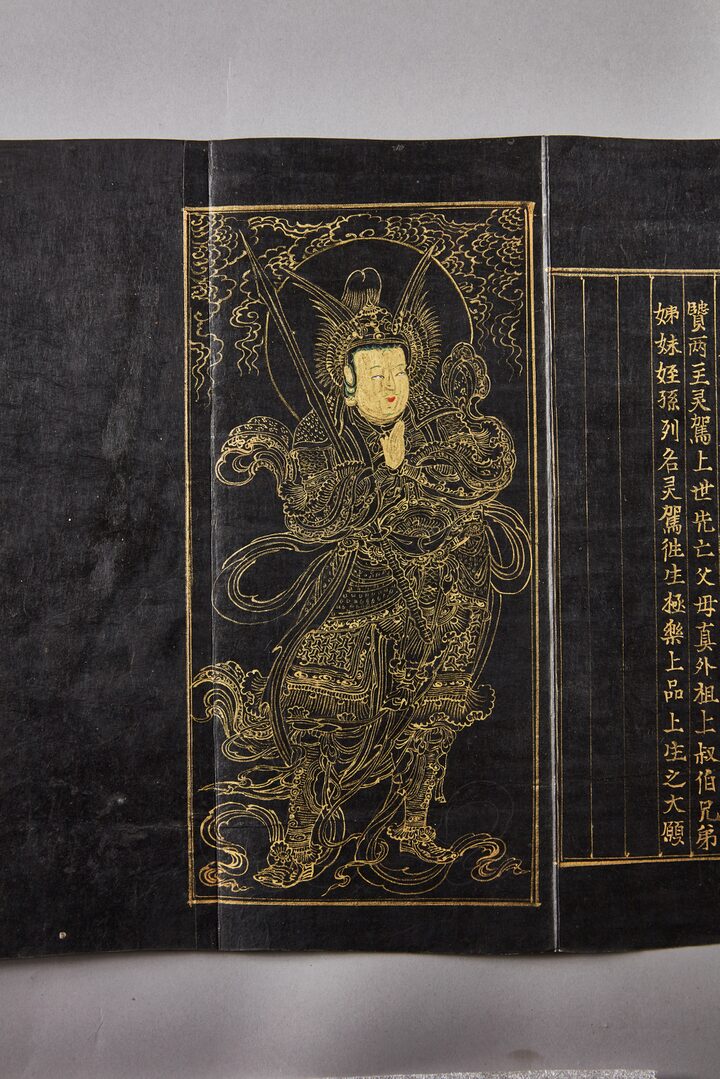 賢两主灵駕上世先亡父母真外祖上叔伯兄弟
姊妹姪孫列名灵駕徃生極樂上品上生之大願